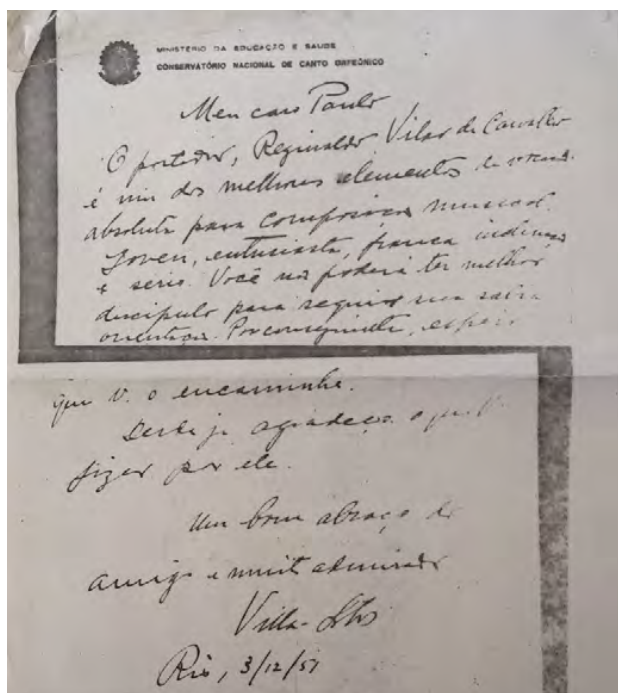 MINISTÉRIO DA EDUCAÇÃO E SAUDE
CONSERVATÓRIO NACIONAL DE CANTO ORFEÔNICO
Meu caro Paulo
O portador, Reginaldo Vilar de Carvalho
é um dos melhores elementos de vocação
absoluta para composição musical.
Joven, entusiasta, franca
e serio. Você não poderá ter melhor
discipulo para seguir sua sabia
orientação. Por conseguinte, espero
que V. o encaminhe.
Desde já agradeço o que V.
fizer por ele.
Um bom abraço do
amigo e muito admirador
Villa-Lobos
Rio, 3/12/51